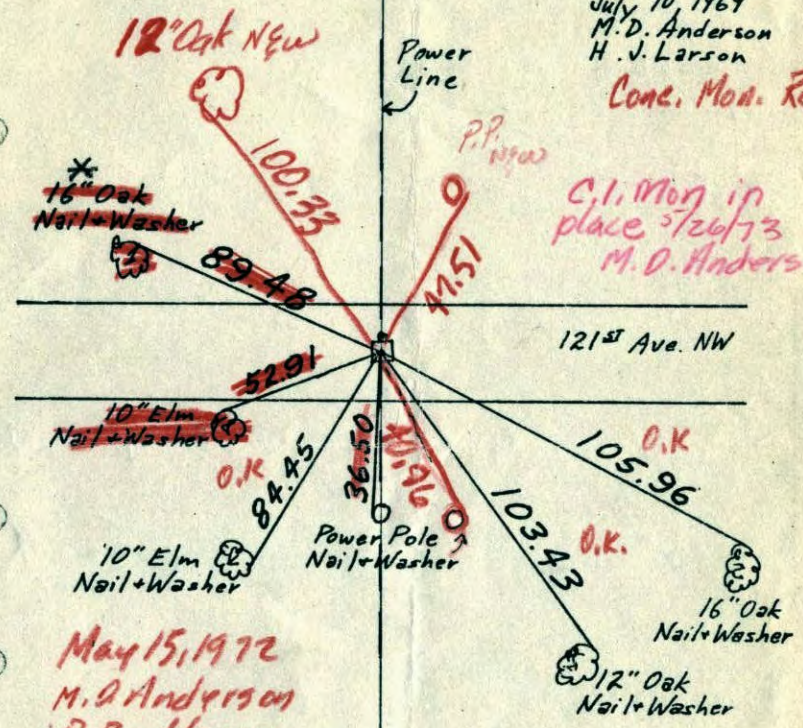 July 10, 1969
M.D. Anderson
H.J. Larson
Conc. Mon.
12" Oak New
Power
Line
P.P.
New
100.33
C.I. Mon in
place 5/26/73
M.D. Anders
16" Oak
Nail+Washer
89.48
47.51
121ST Ave. NW
52.91
10" Elm
Nail+Washer
O.K
84.45
36.50
40.96
105.96
O.K
103.43
O.K.
10" Elm
Nail+Washer
Power Pole
Nail+Washer
16" Oak
Nail+Washer
12" Oak
Nail+Washer
May 15, 1972
M.D Anderson